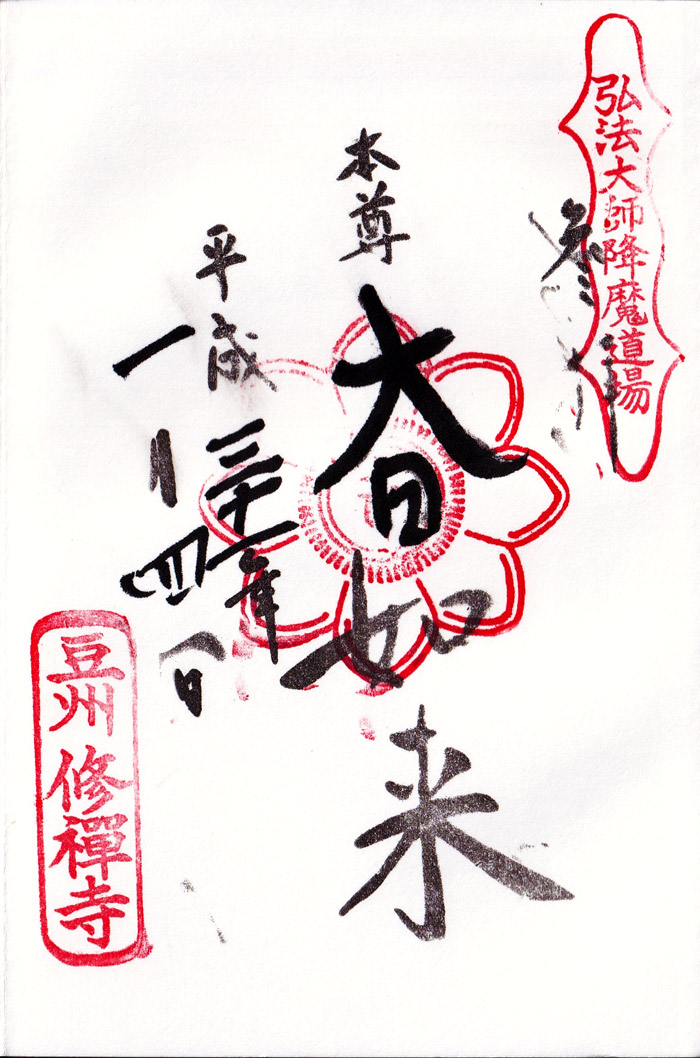 弘法大師降魔道場
参拝
本尊
大日如来
平成三十一年
一月四日
豆州修禪寺